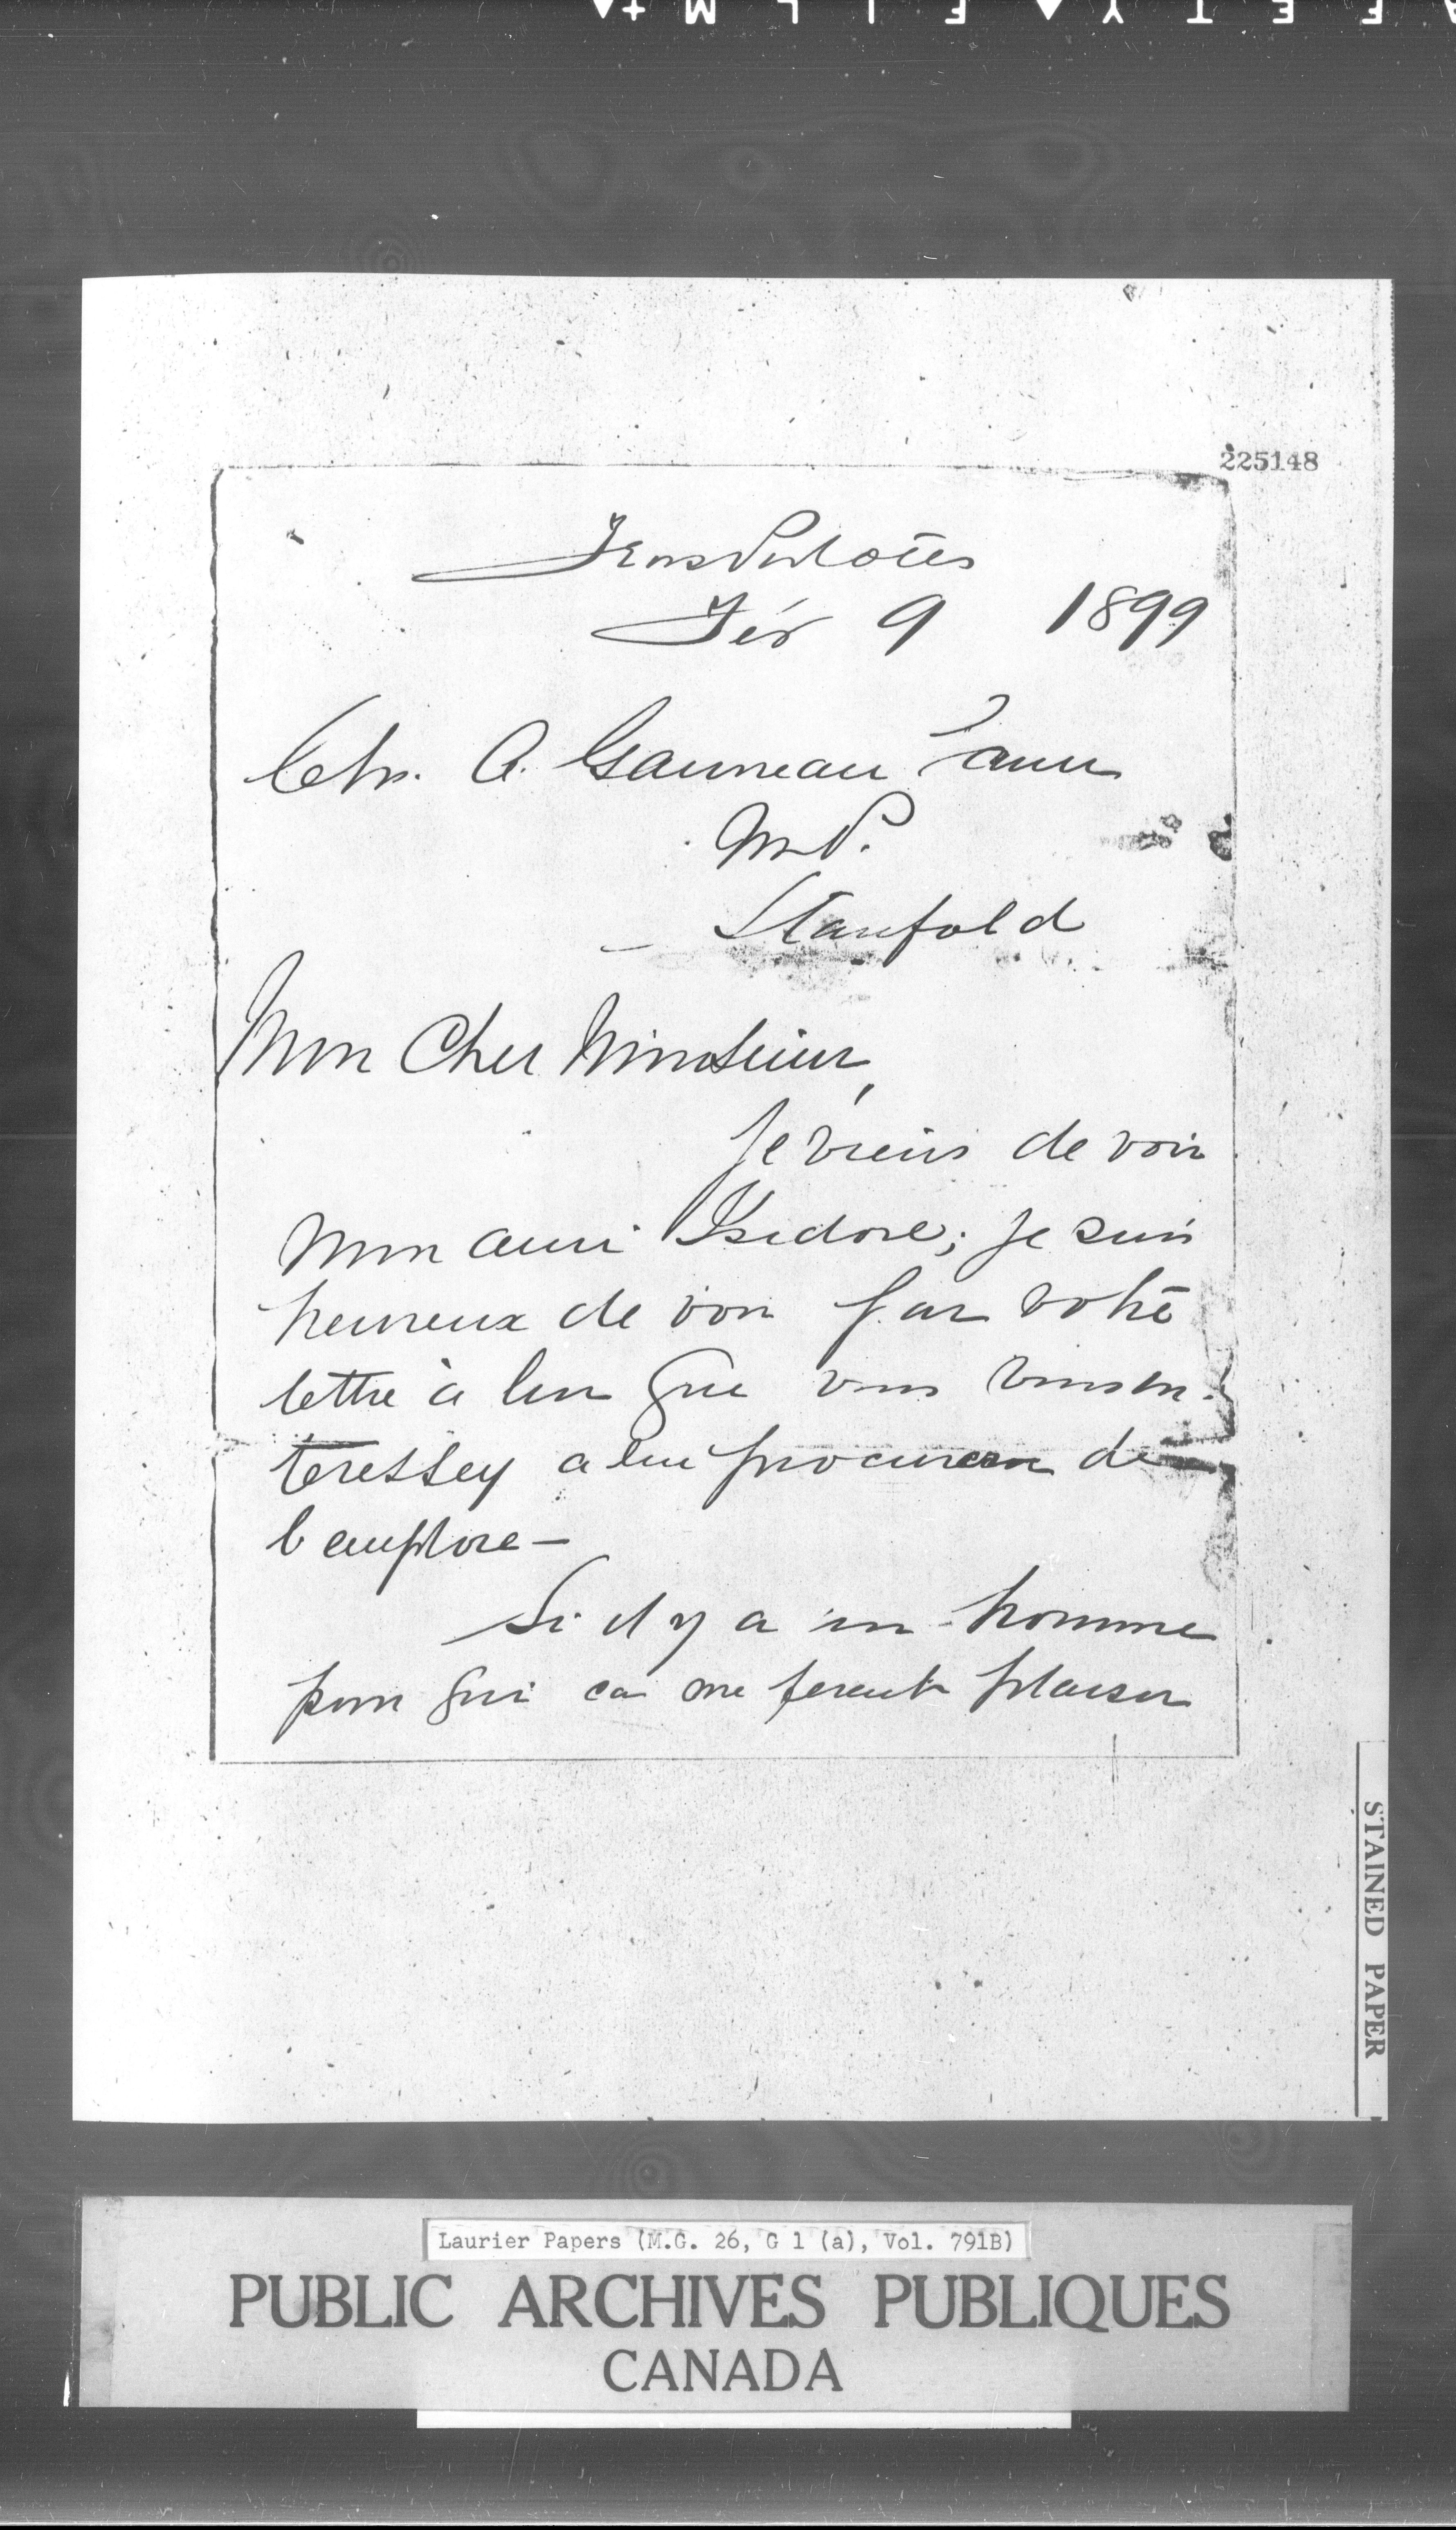 SAFETY FILM
225148
Trois Pistoles
Fév 9 1899
Chs. A. Gauvreau
M.P.
Stanfold
Mon Cher Monsieur,
Je viens de voir
mon ami Isidore; je suis
heureux de voir par votre
lettre à lui que vous vous in-
teressey a lui procurer de
l emploie -
Si il y a un homme
pour qui ca me ferait plaisir
STAINED PAPER
Laurier Papers (M.G. 26, G 1 (a), Vol. 791B)
PUBLIC ARCHIVES PUBLIQUES
CANADA